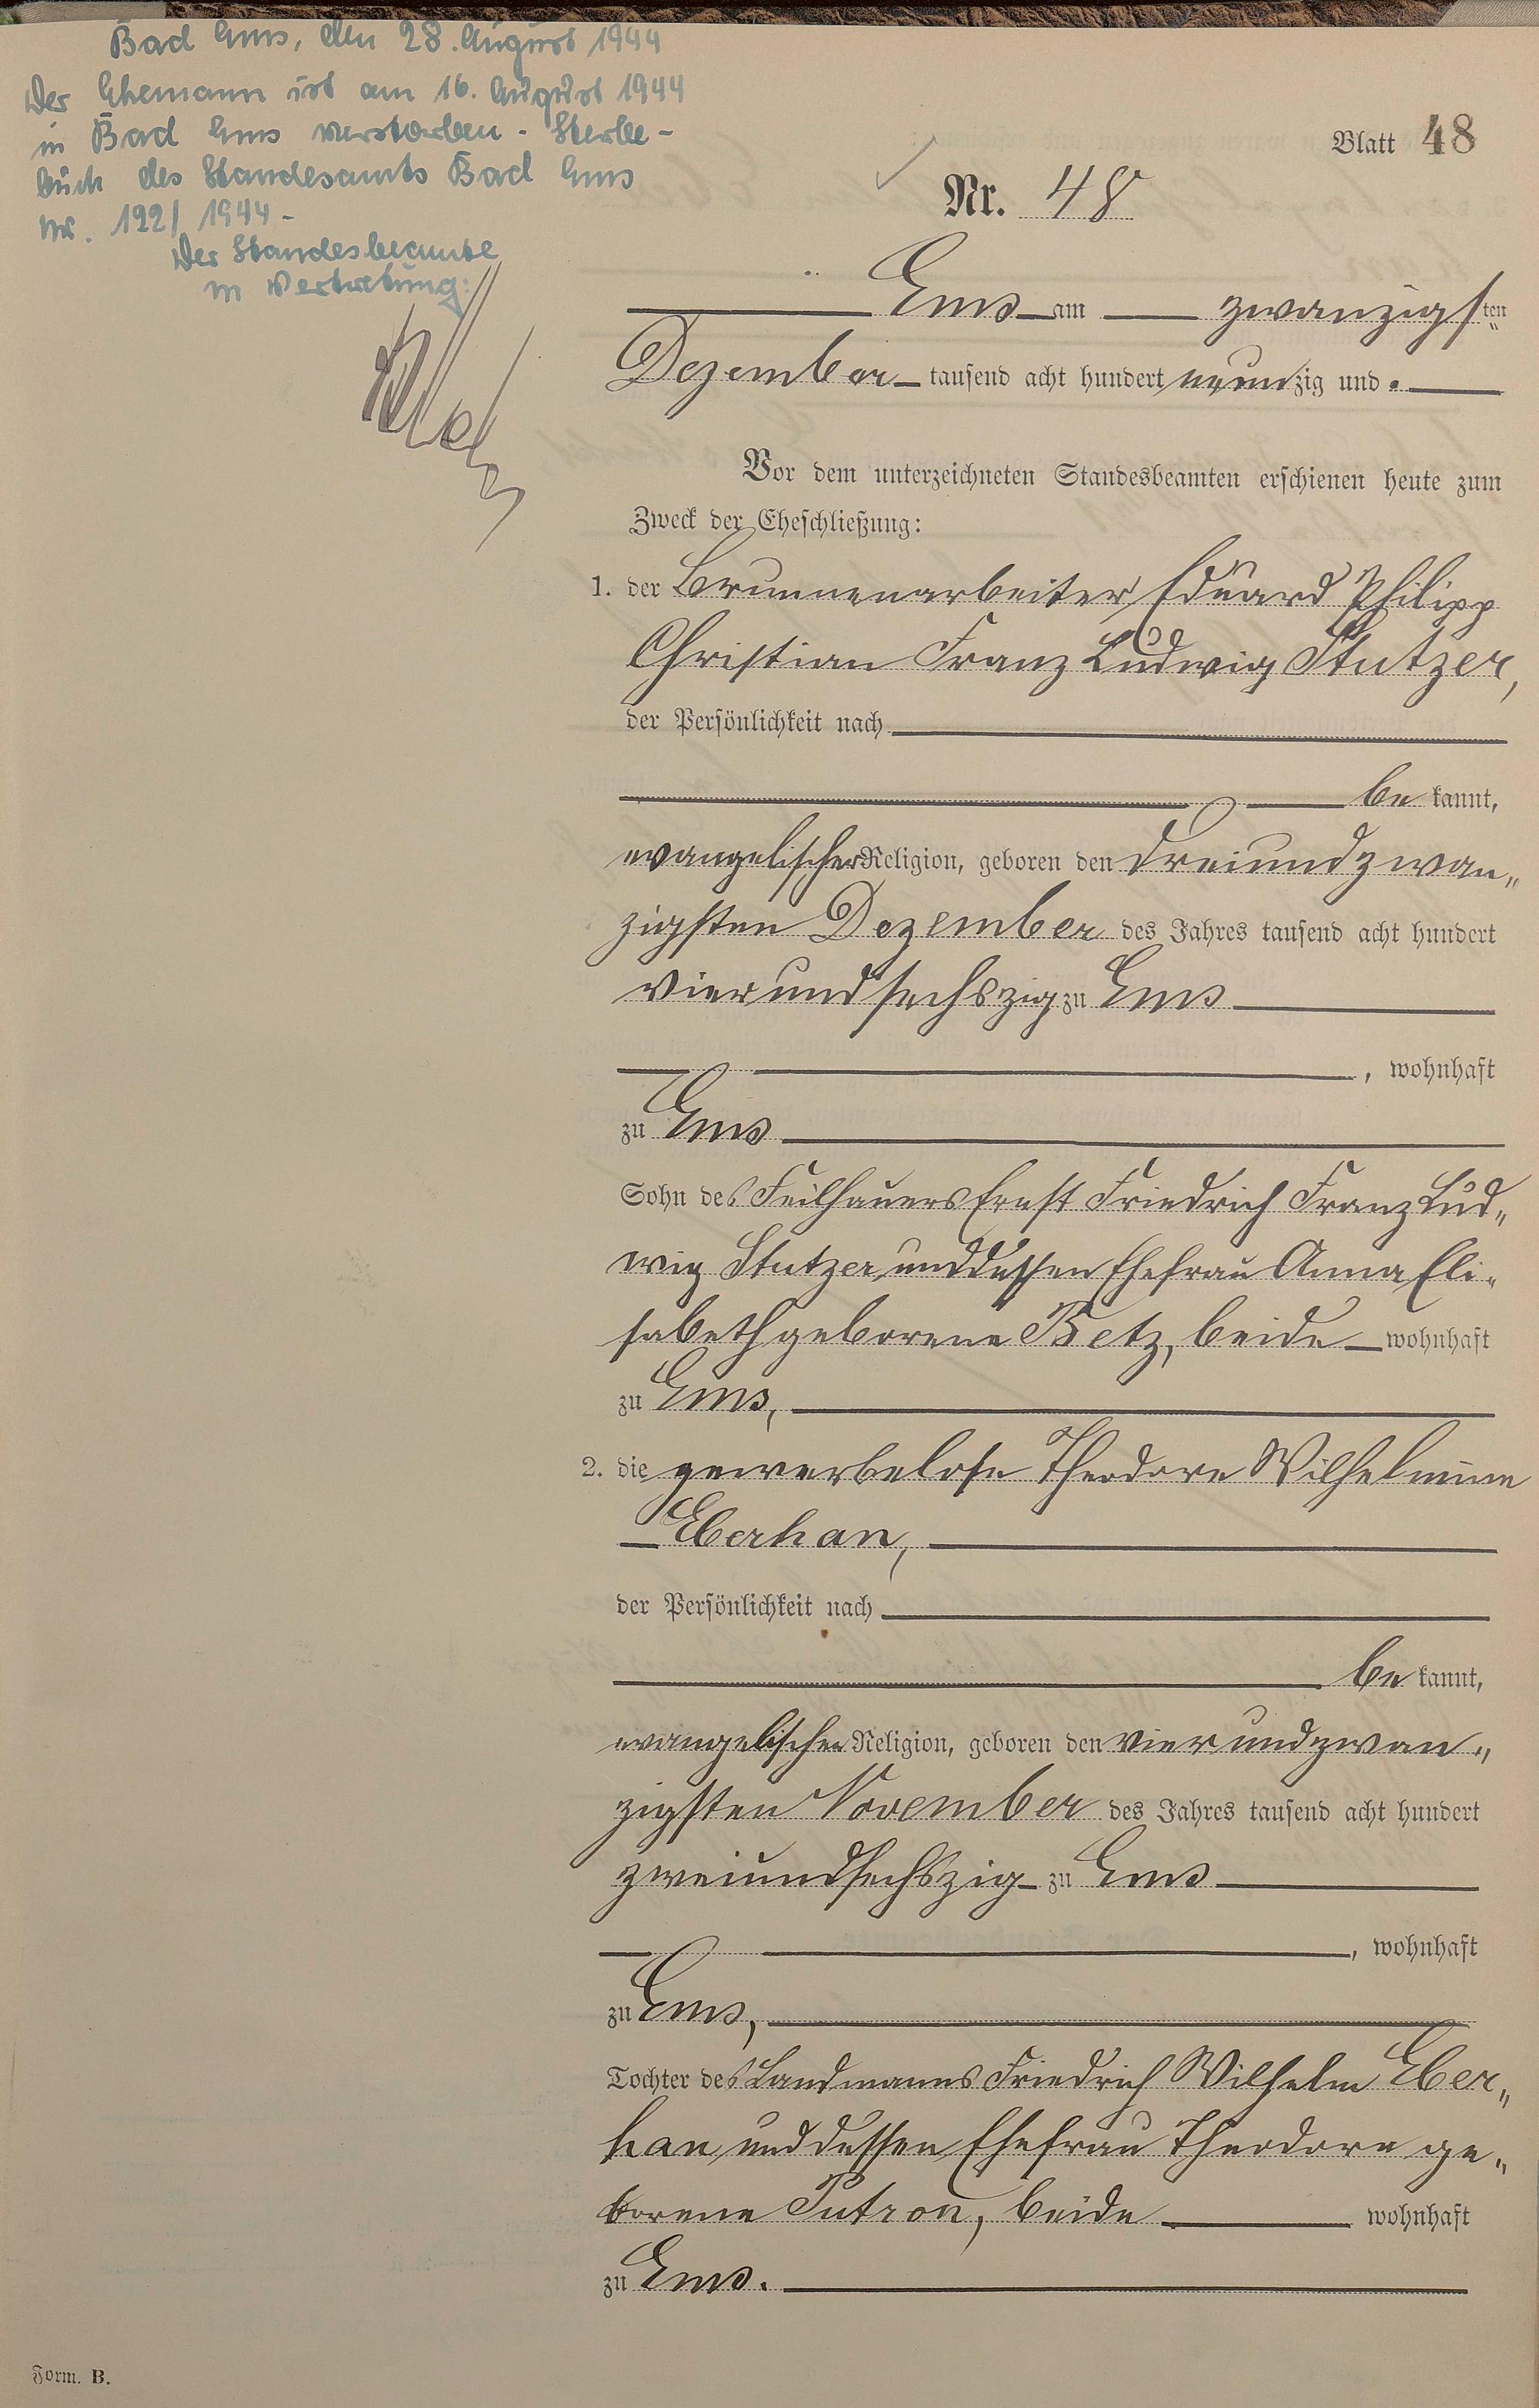 Bad Ems, den 28. August 1944
Der Ehemann ist am 16. August 1944
in Bad Ems verstorben - Sterbe-
buch des Standesamts Bad Ems
Nr. 122/1944 -
Der Standesbeamte
in Vertretung:
Blatt 48
Nr. 48
Ems am zwanzigsten
Dezember tausend acht hundert neunzig und
Vor dem unterzeichneten Standesbeamten erschienen heute zum
Zweck der Eheschließung:
1. der Brunnenarbeiter Eduard Philipp
Christian Franz Ludwig Stutzer,
der Persönlichkeit nach
be kannt,
evangelischer Religion, geboren den dreiundzwan„
zigsten Dezember des Jahres tausend acht hundert
vierundsechszig zu Ems
, wohnhaft
zu Ems
Sohn des Feilhauers Ernst Friedrich Franz Lud„
wig Stutzer und dessen Ehefrau Anna Eli„
sabeth geborene Betz, beide wohnhaft
zu Ems,
2. die gewerbelose Theodore Wilhelmine
Eberhan,
der Persönlichkeit nach
be kannt,
evangelischer Religion, geboren den vierundzwan„
zigsten November des Jahres tausend acht hundert
zweiundsechszig zu Ems
, wohnhaft
zu Ems,
Tochter des Landmanns Friedrich Wilhelm Eber„
han und dessen Ehefrau Theodore ge„
borene Putron, beide wohnhaft
zu Ems.
Form. B.